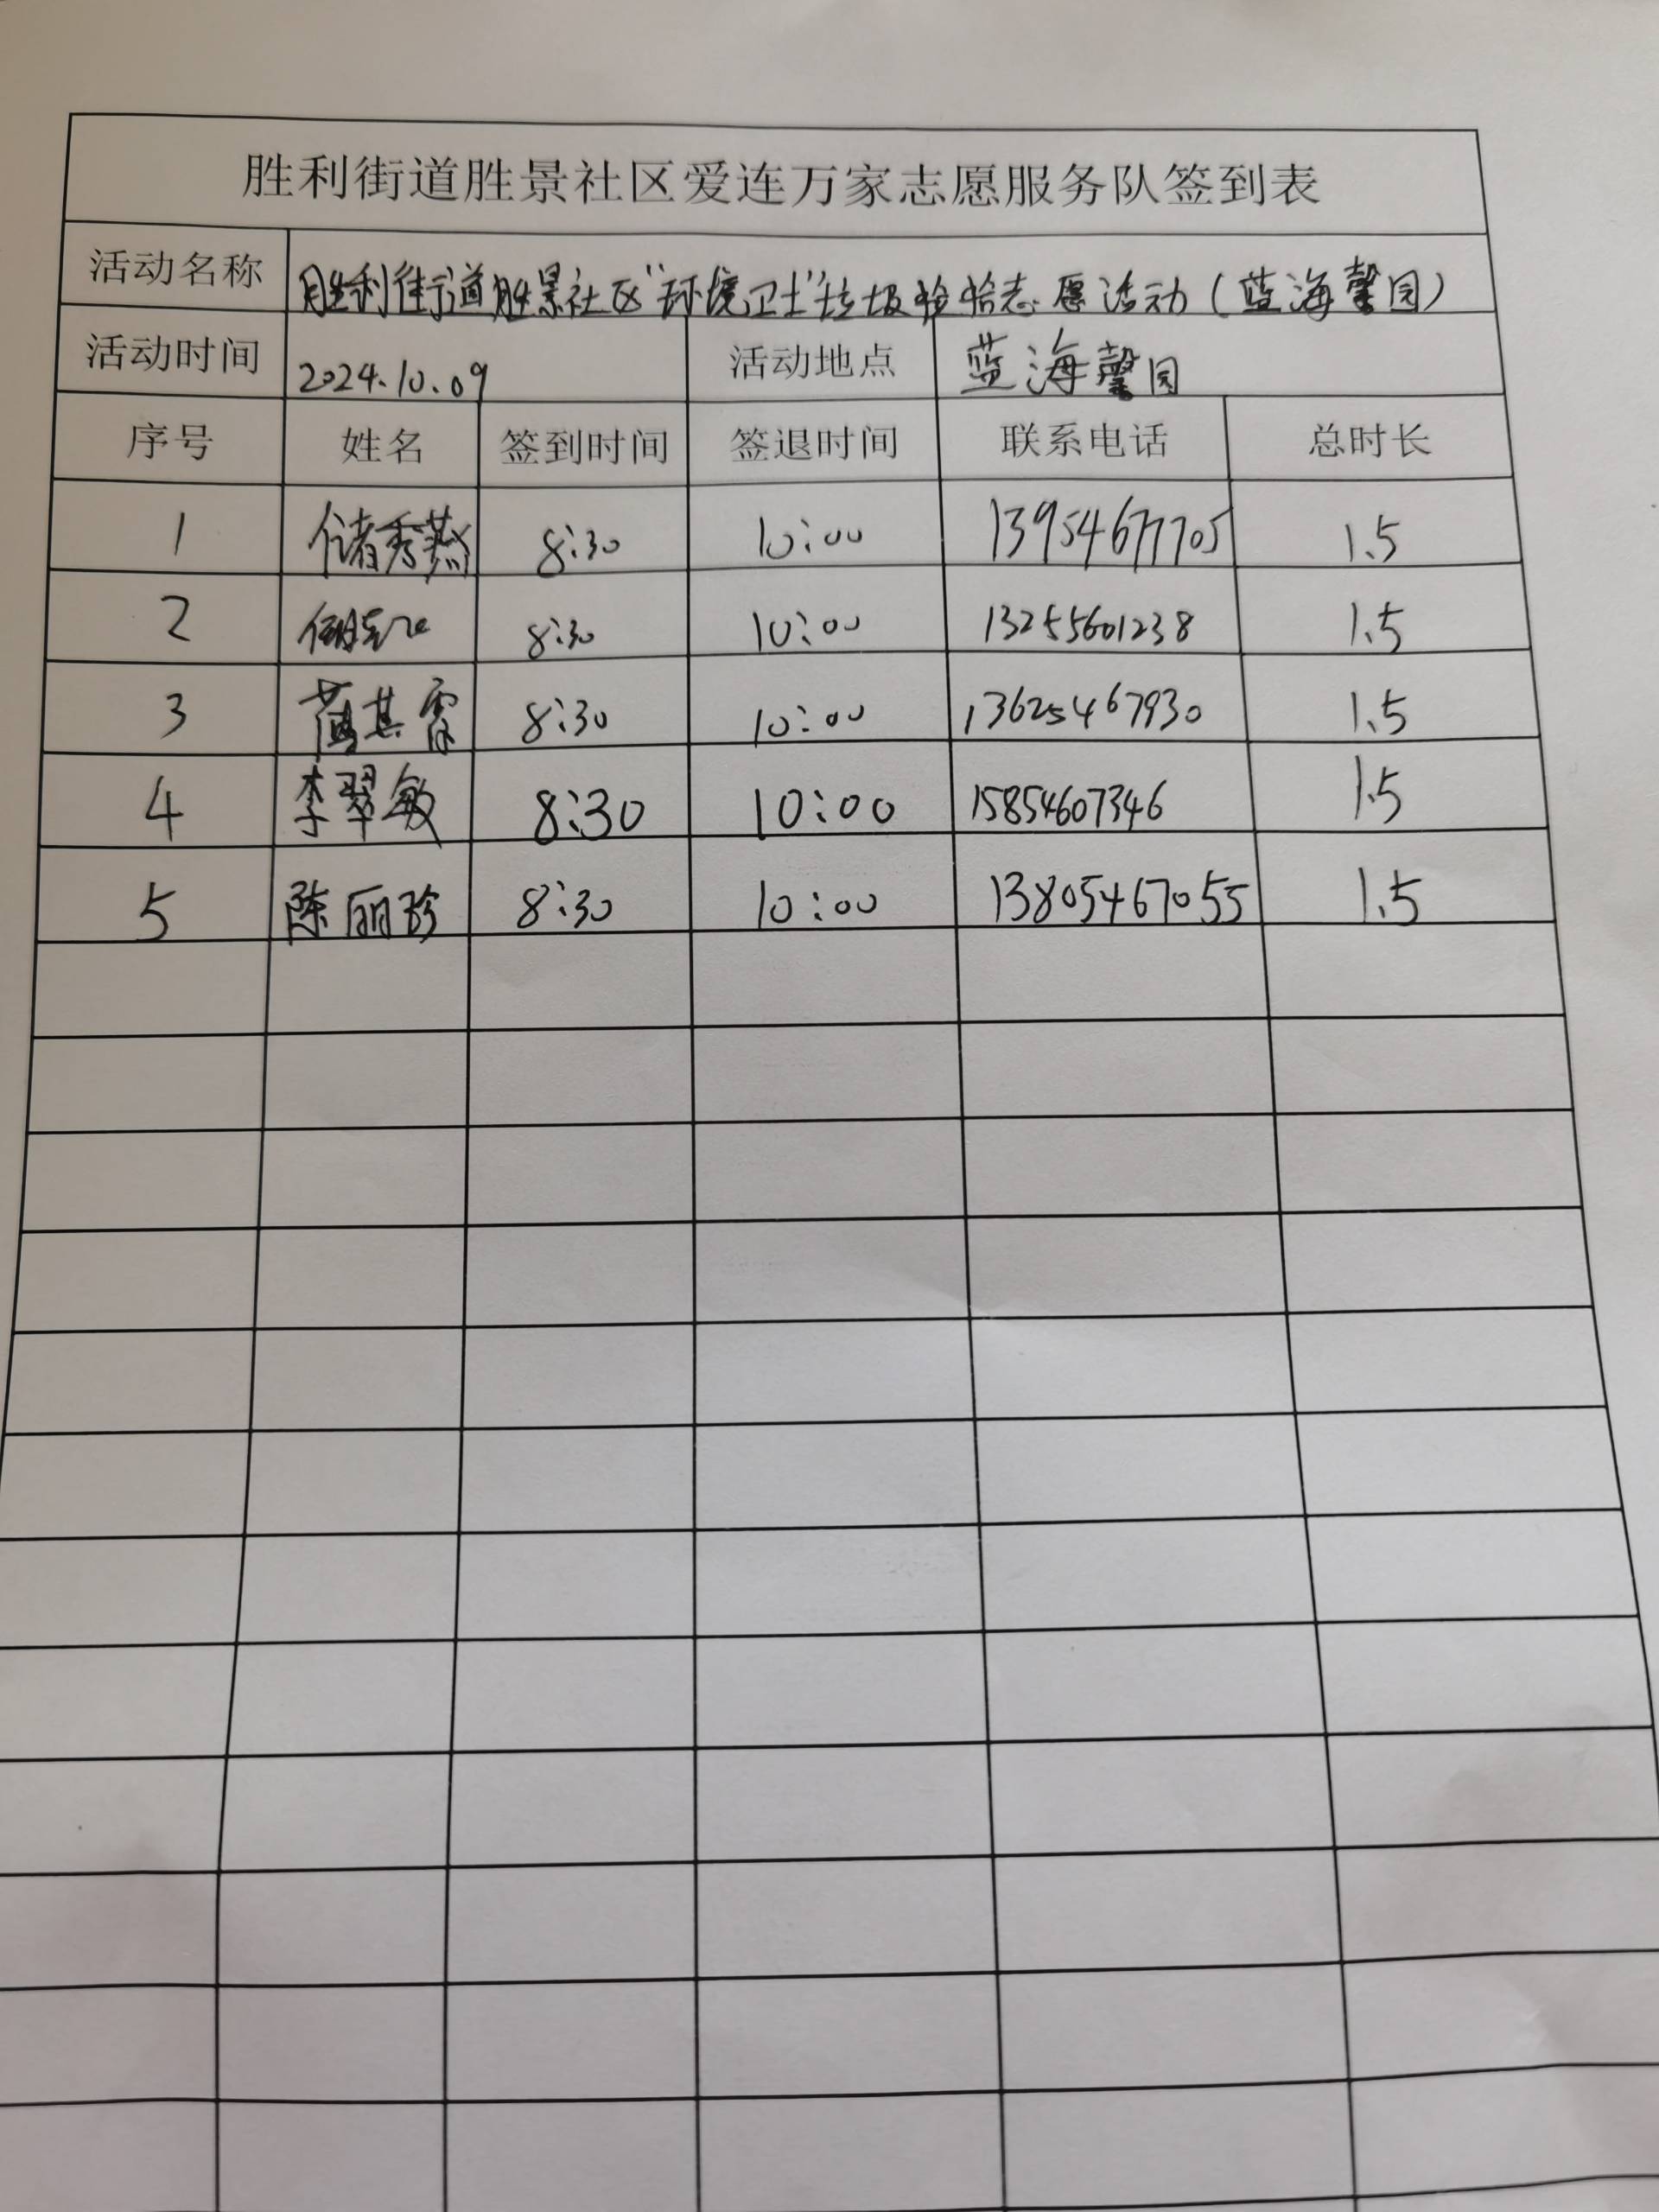 胜利街道胜景社区爱连万家志愿服务队签到表
活动名称 胜利街道胜景社区"环境卫士"垃圾捡拾志愿活动(蓝海馨园)
活动时间 2024.10.09 活动地点 蓝海馨园
序号 姓名 签到时间 签退时间 联系电话 总时长
1 储秀燕 8:30 10:00 13954677705 1.5
2 8:30 10:00 13255601238 1.5
3 8:30 10:00 13625467930 1.5
4 李翠敏 8:30 10:00 15854607346 1.5
5 陈丽珍 8:30 10:00 13805467055 1.5